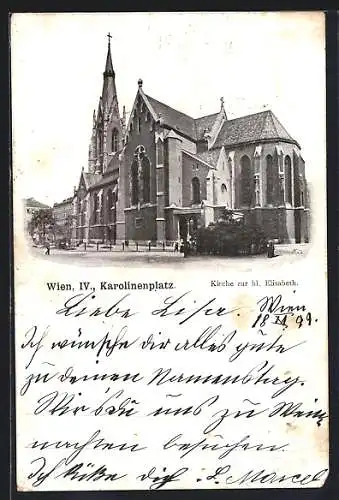 Wien, IV., Karolinenplatz.
Kirche zur hl. Elisabeth.
Liebe Lisa. Wien
18 XI 99.
Ich wünsche dir alles gute
zu deinen Namenstag.
uns zu Weih
nachten besuchen.
Ich küße dich. Marcel